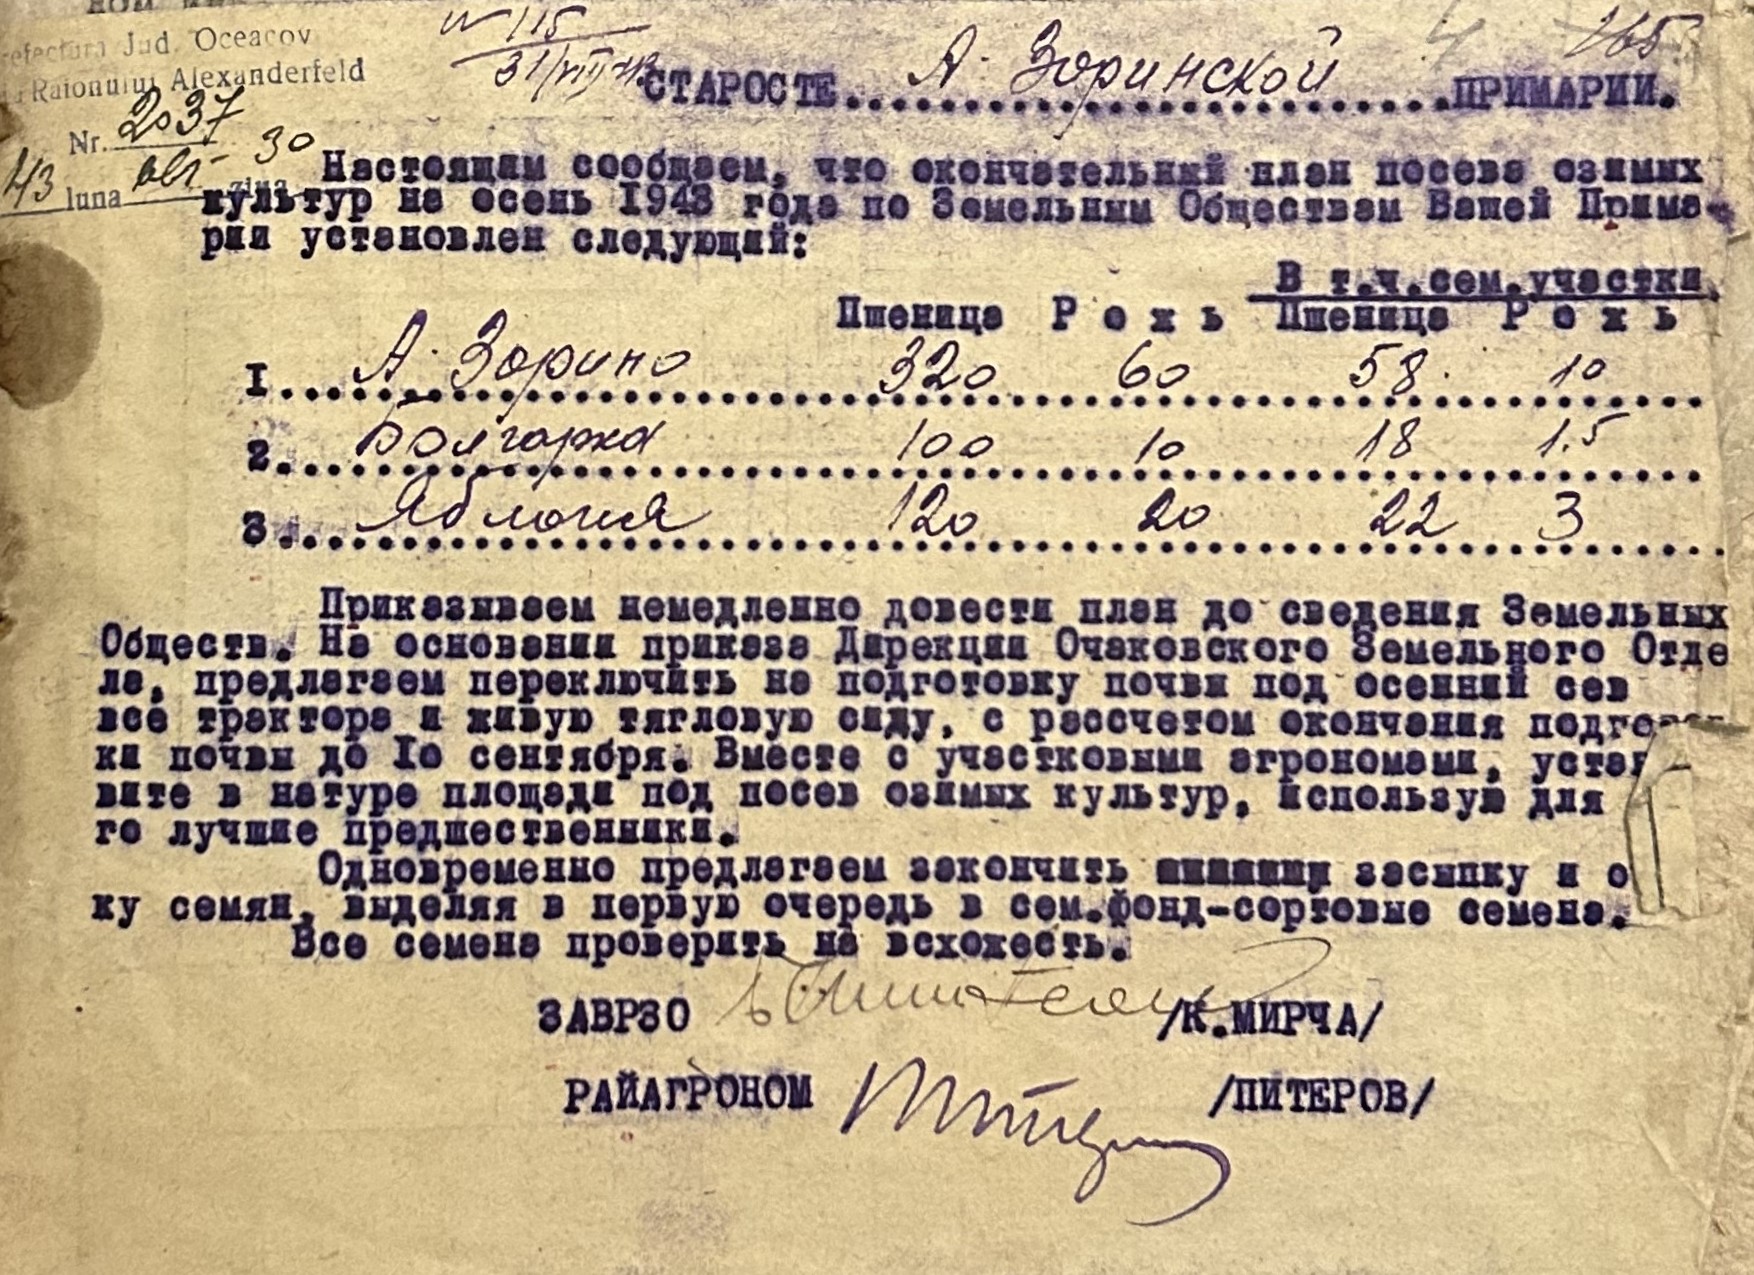 Prefectura Jud. Oceacov
Raionului Alexanderfeld
Nr. 2037
43 luna авг 30 ziua
№115
31/VIII 43
165
СТАРОСТЕ А. Зоринской ПРИМАРИИ.
Настоящим сообщаем, что окончательный план посева озимых
культур на осень 1943 года по Земельным Обществам Вашей Прима-
рии установлен следующий:
В т.ч.сем.участки
Пшеница Р о ж ь Пшеница Р о ж ь
1. А. Зорино 320 60 58 10
2. Болгарка 100 10 18 1.5
3. Яблоня 120 20 22 3
Приказываем немедленно довести план до сведения Земельных
Обществ. На основании приказа Дирекции Очаковского Земельного Отде
ла, предлагаем переключить на подготовку почвы под осенний сев
все трактора и живую тягловую силу, с рассчетом окончания подготов
ки почвы до 10 сентября. Вместе с участковыми агрономами, устан
вите в натуре площади под посев озимых культур, используя для
го лучшие предшественники.
Одновременно предлагаем закончить засыпку и о
ку семян, выделяя в первую очередь в сем.фонд-сортовые семена.
Все семена проверить на всхожесть.
ЗАВРЗО /К.МИРЧА/
РАЙАГРОНОМ /ПИТЕРОВ/